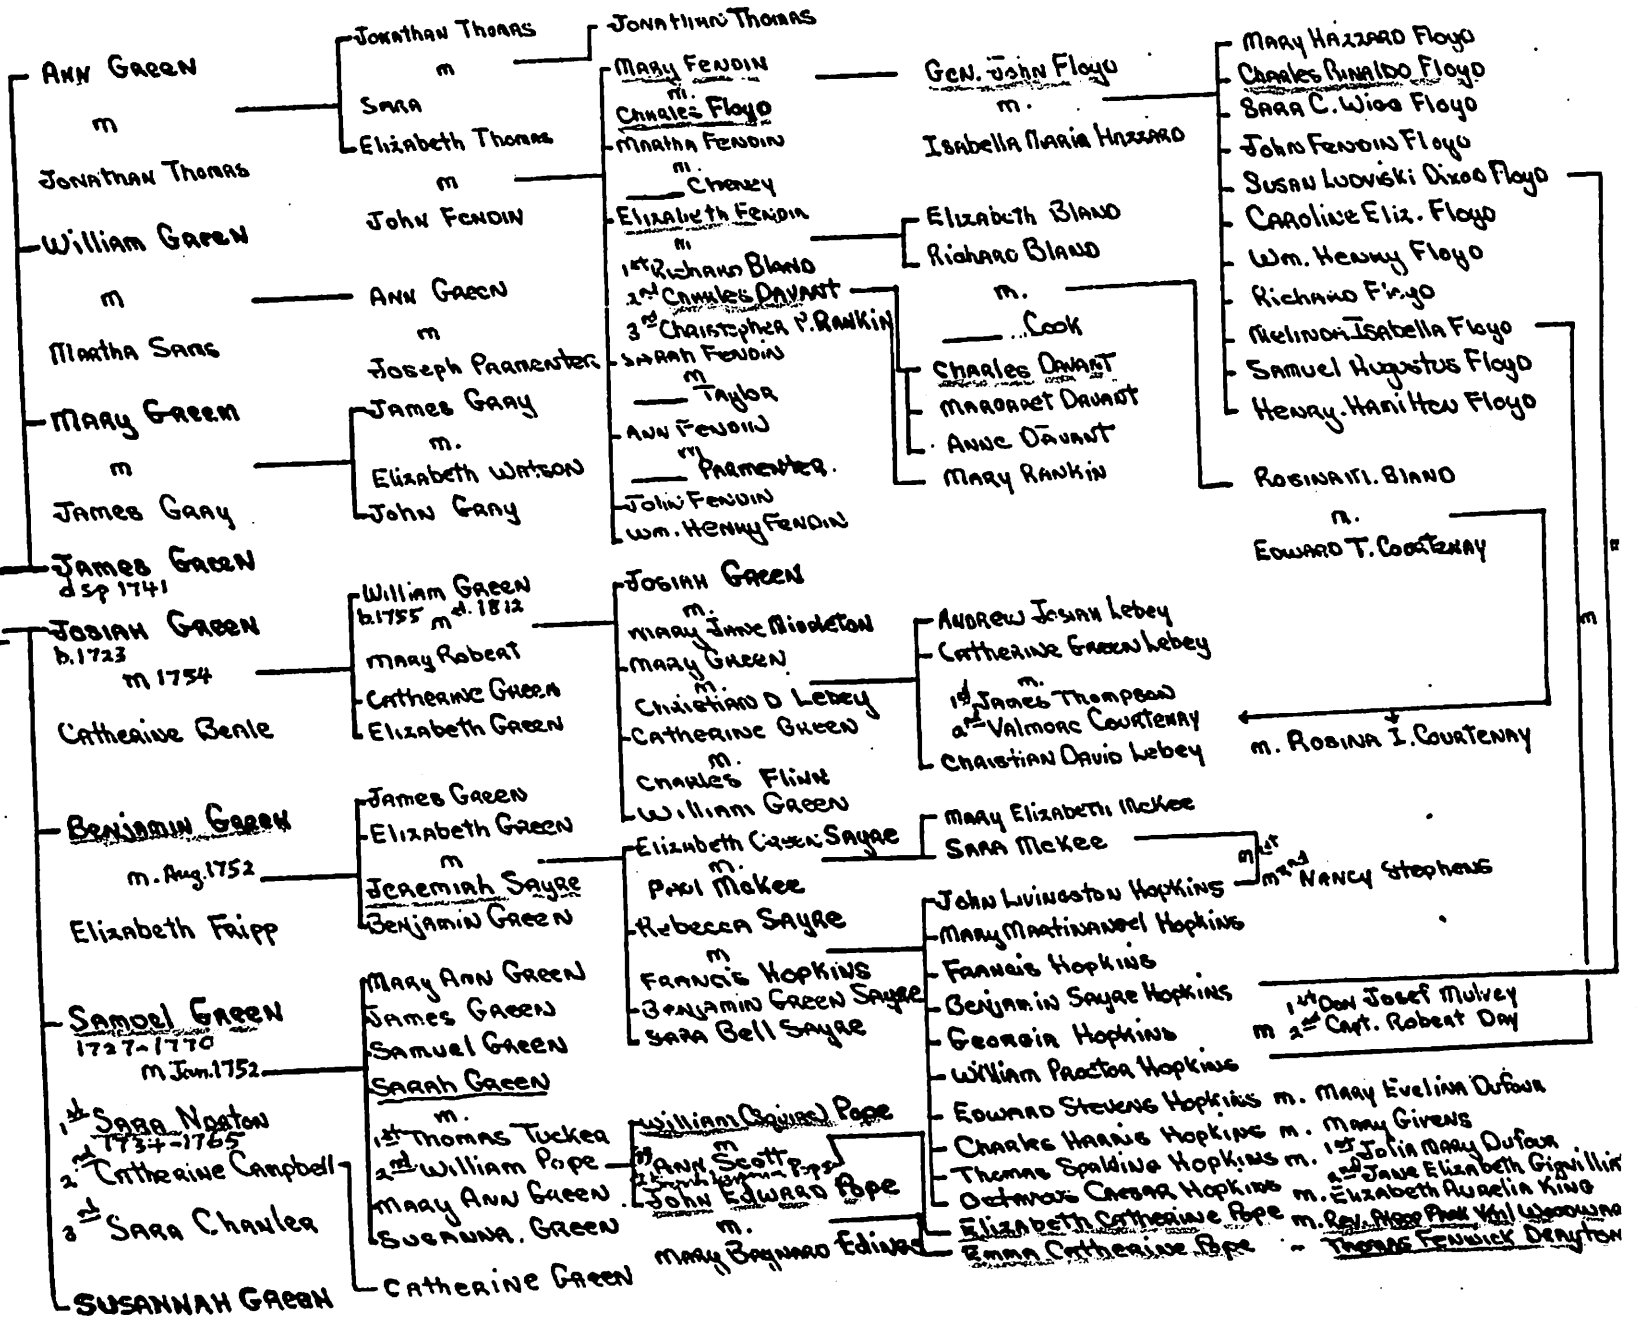 Ann Green
m
Jonathan Thomas
William Green
m
Martha Sams
Mary Green
m
James Gray
James Green
d sp 1741
Josiah Green
b. 1723
m 1754
Catherine Beale
Benjamin Green
m. Aug. 1752
Elizabeth Fripp
Samuel Green
1727-1770
m Jan. 1752
1st Sara Norton
1734-1765
2nd Catherine Campbell
3rd Sara Chanler
Susannah Green
Jonathan Thomas
m
Sara
Elizabeth Thomas
m
John Fendin
Ann Green
m
Joseph Parmenter
James Gray
m.
Elizabeth Watson
John Gray
William Green
b. 1755 m d. 1812
Mary Robert
Catherine Green
Elizabeth Green
James Green
Elizabeth Green
m
Jeremiah Sayre
Benjamin Green
Mary Ann Green
James Green
Samuel Green
Sarah Green
m.
1st Thomas Tucker
2nd William Pope
Mary Ann Green
Susanna. Green
Catherine Green
Jonathan Thomas
Mary Fendin
m.
Charles Floyd
Martha Fendin
m.
Cheney
Elizabeth Fendin
m
1st Richard Bland
2nd Charles Davant
3rd Christopher P. Rankin
Sarah Fendin
m
Taylor
Ann Fendin
m
Parmenter.
John Fendin
Wm. Henry Fendin
Josiah Green
m.
Mary Jane Middleton
Mary Green
m.
Christian D Lebey
Catherine Green
m.
Charles Flinn
William Green
Elizabeth Green Sayre
m.
Paul McKee
Rebecca Sayre
m
Francis Hopkins
Benjamin Green Sayre
Sara Bell Sayre
William (Squire) Pope
m
Ann Scott
John Edward Pope
m.
Mary Baynard Edings
Gen. John Floyd
m.
Isabella Maria Hazzard
Elizabeth Bland
Richard Bland
m.
Cook
Charles Davant
Margaret Davant
Anne Davant
Mary Rankin
Andrew Josiah Lebey
Catherine Green Lebey
m.
1st James Thompson
2nd Valmore Courtenay
Christian David Lebey
Mary Elizabeth McKee
Sara McKee
m 1st
John Livingston Hopkins m 2nd Nancy Stephens
Mary Martinangel Hopkins
Francis Hopkins
Benjamin Sayre Hopkins
Georgia Hopkins m 1st Don Josef Mulvey
2nd Capt. Robert Day
William Proctor Hopkins
Edward Stevens Hopkins m. Mary Evelina Dufour
Charles Harris Hopkins m. Mary Givens
Thomas Spalding Hopkins m. 1st Julia Mary Dufour
2nd Jane Elizabeth Gignillin
Octavous Caesar Hopkins m. Elizabeth Aurelia King
Elizabeth Catherine Pope m. Rev.
Emma Catherine Pope - Thomas Fenwick Drayton
Mary Hazzard Floyd
Charles Rinaldo Floyd
Sara C. Wigg Floyd
John Fendin Floyd
Susan Ludviski Dixon Floyd
Caroline Eliz. Floyd
Wm. Henry Floyd
Richard Floyd
Melinda Isabella Floyd
Samuel Augustus Floyd
Henry. Hamilton Floyd
Rosina M. Bland
m.
Edward T. Courtenay
m. Rosina I. Courtenay
m
m